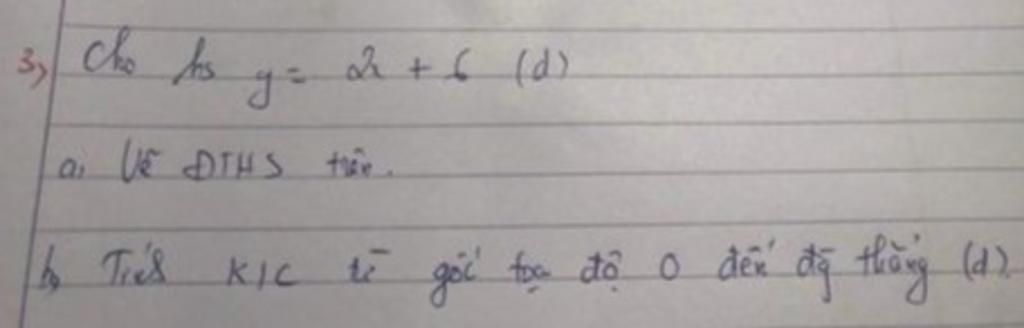 3, Cho hs y = 2x + 6 (d)
a, Vẽ ĐTHS trên.
b, Tính K/C từ gốc tọa độ O đến đg thẳng (d).